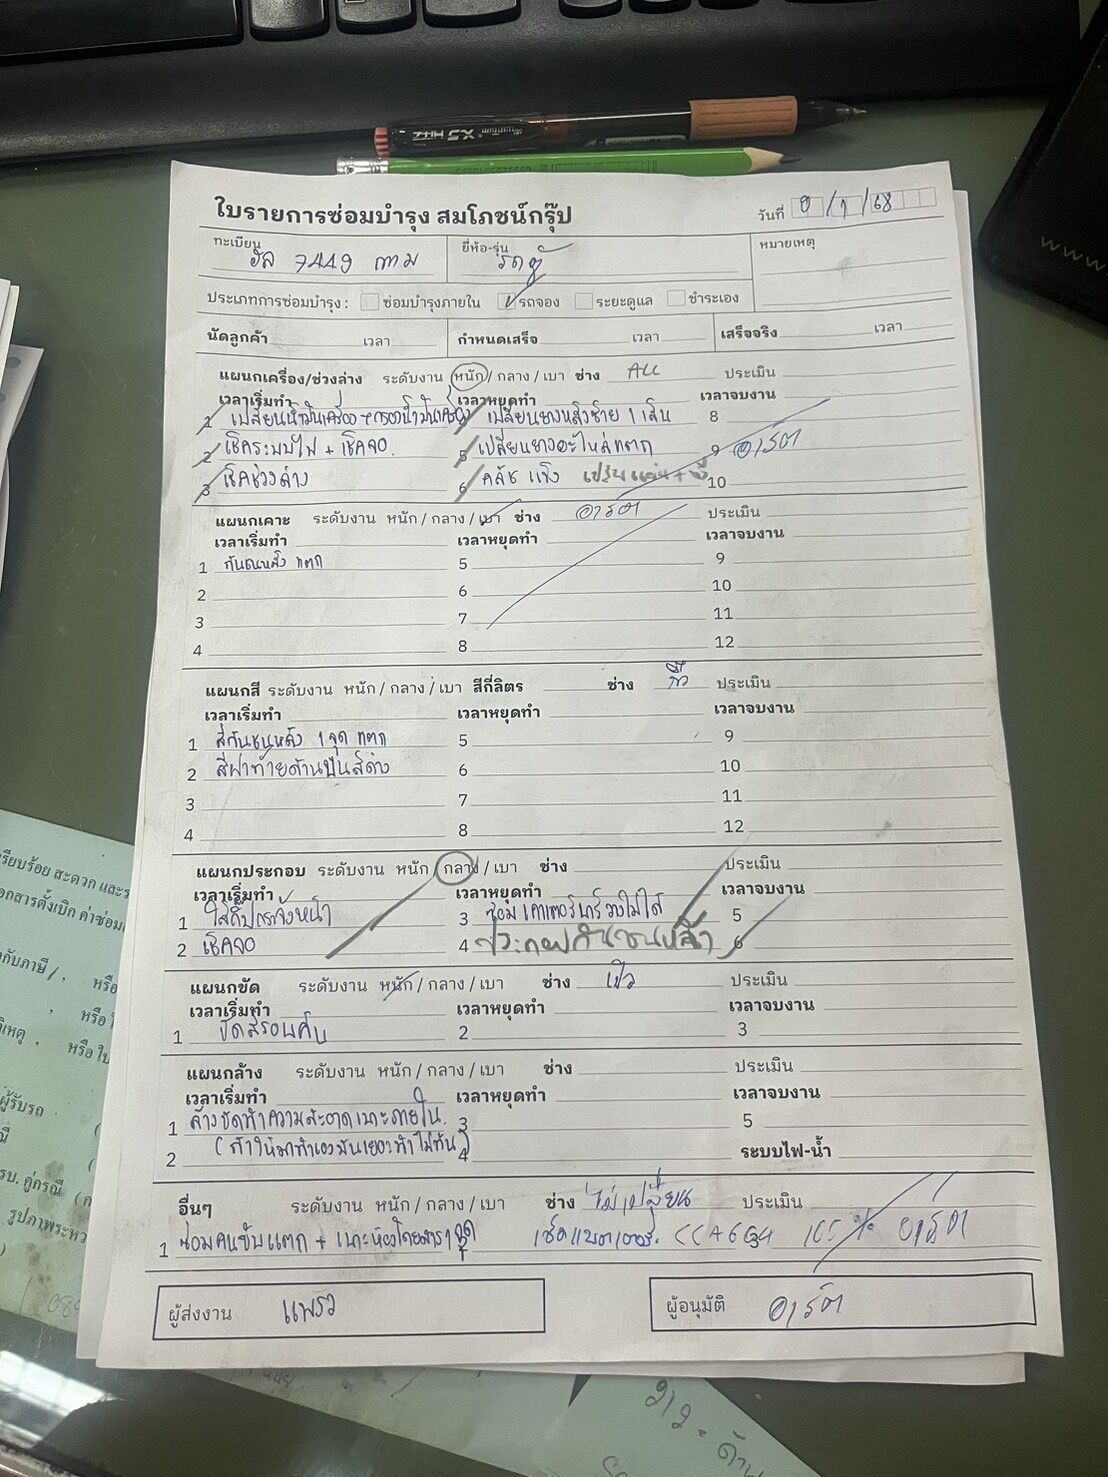 ใบรายการซ่อมบำรุง สมโภชน์กรุ๊ป
วันที่ 8/1/68
ทะเบียน ฮล 7449 กทม
ยี่ห้อ-รุ่น รถตู้
หมายเหตุ
ประเภทการซ่อมบำรุง : ซ่อมบำรุงภายใน รถจอง ระยะดูแล ชำระเอง
นัดลูกค้า เวลา กำหนดเสร็จ เวลา เสร็จจริง เวลา
แผนกเครื่อง/ช่วงล่าง ระดับงาน หนัก / กลาง / เบา ช่าง ALL ประเมิน
เวลาเริ่มทำ เวลาหยุดทำ เวลาจบงาน
1 เปลี่ยนน้ำมันเครื่อง + กรองน้ำมันเครื่อง เปลี่ยนยางหลังซ้าย 1 เส้น 8
2 เช็คระบบไฟ + เช็คจอ. 5 เปลี่ยนยางอะไหล่แตก 9 อาร์ต
3 เช็คช่วงล่าง 6 คลัช แข็ง 10
แผนกเคาะ ระดับงาน หนัก / กลาง / เบา ช่าง อาร์ต ประเมิน
เวลาเริ่มทำ เวลาหยุดทำ เวลาจบงาน
1 กันชนหลัง แตก 5 9
2 6 10
3 7 11
4 8 12
แผนกสี ระดับงาน หนัก / กลาง / เบา สีกี่ลิตร ช่าง ประเมิน
เวลาเริ่มทำ เวลาหยุดทำ เวลาจบงาน
1 สีกันชนหลัง 1 จุด แตก 5 9
2 สีฝาท้ายด้านปืนสีด่าง 6 10
3 7 11
4 8 12
แผนกประกอบ ระดับงาน หนัก / กลาง / เบา ช่าง ประเมิน
เวลาเริ่มทำ เวลาหยุดทำ เวลาจบงาน
1 ใส่กิ๊ปกระจังหน้า 3 ซ่อม 5
2 เช็คจอ 4 ประกอบกันชนหลัง 6
แผนกขัด ระดับงาน หนัก / กลาง / เบา ช่าง ประเมิน
เวลาเริ่มทำ เวลาหยุดทำ เวลาจบงาน
1 ขัดสีรอบคัน 2 3
แผนกล้าง ระดับงาน หนัก / กลาง / เบา ช่าง ประเมิน
เวลาเริ่มทำ เวลาหยุดทำ เวลาจบงาน
1 ล้างขัดทำความสะอาดเบาะภายใน 3 5
2 4 ระบบไฟ-น้ำ
อื่นๆ ระดับงาน หนัก / กลาง / เบา ช่าง ไม่เปลี่ยน ประเมิน
1 ซ่อมคนขับแตก + เบาะห้องโดยสาร 1 จุด เช็คแบตเตอรี่ อาร์ต
ผู้ส่งงาน แพรว
ผู้อนุมัติ อาร์ต